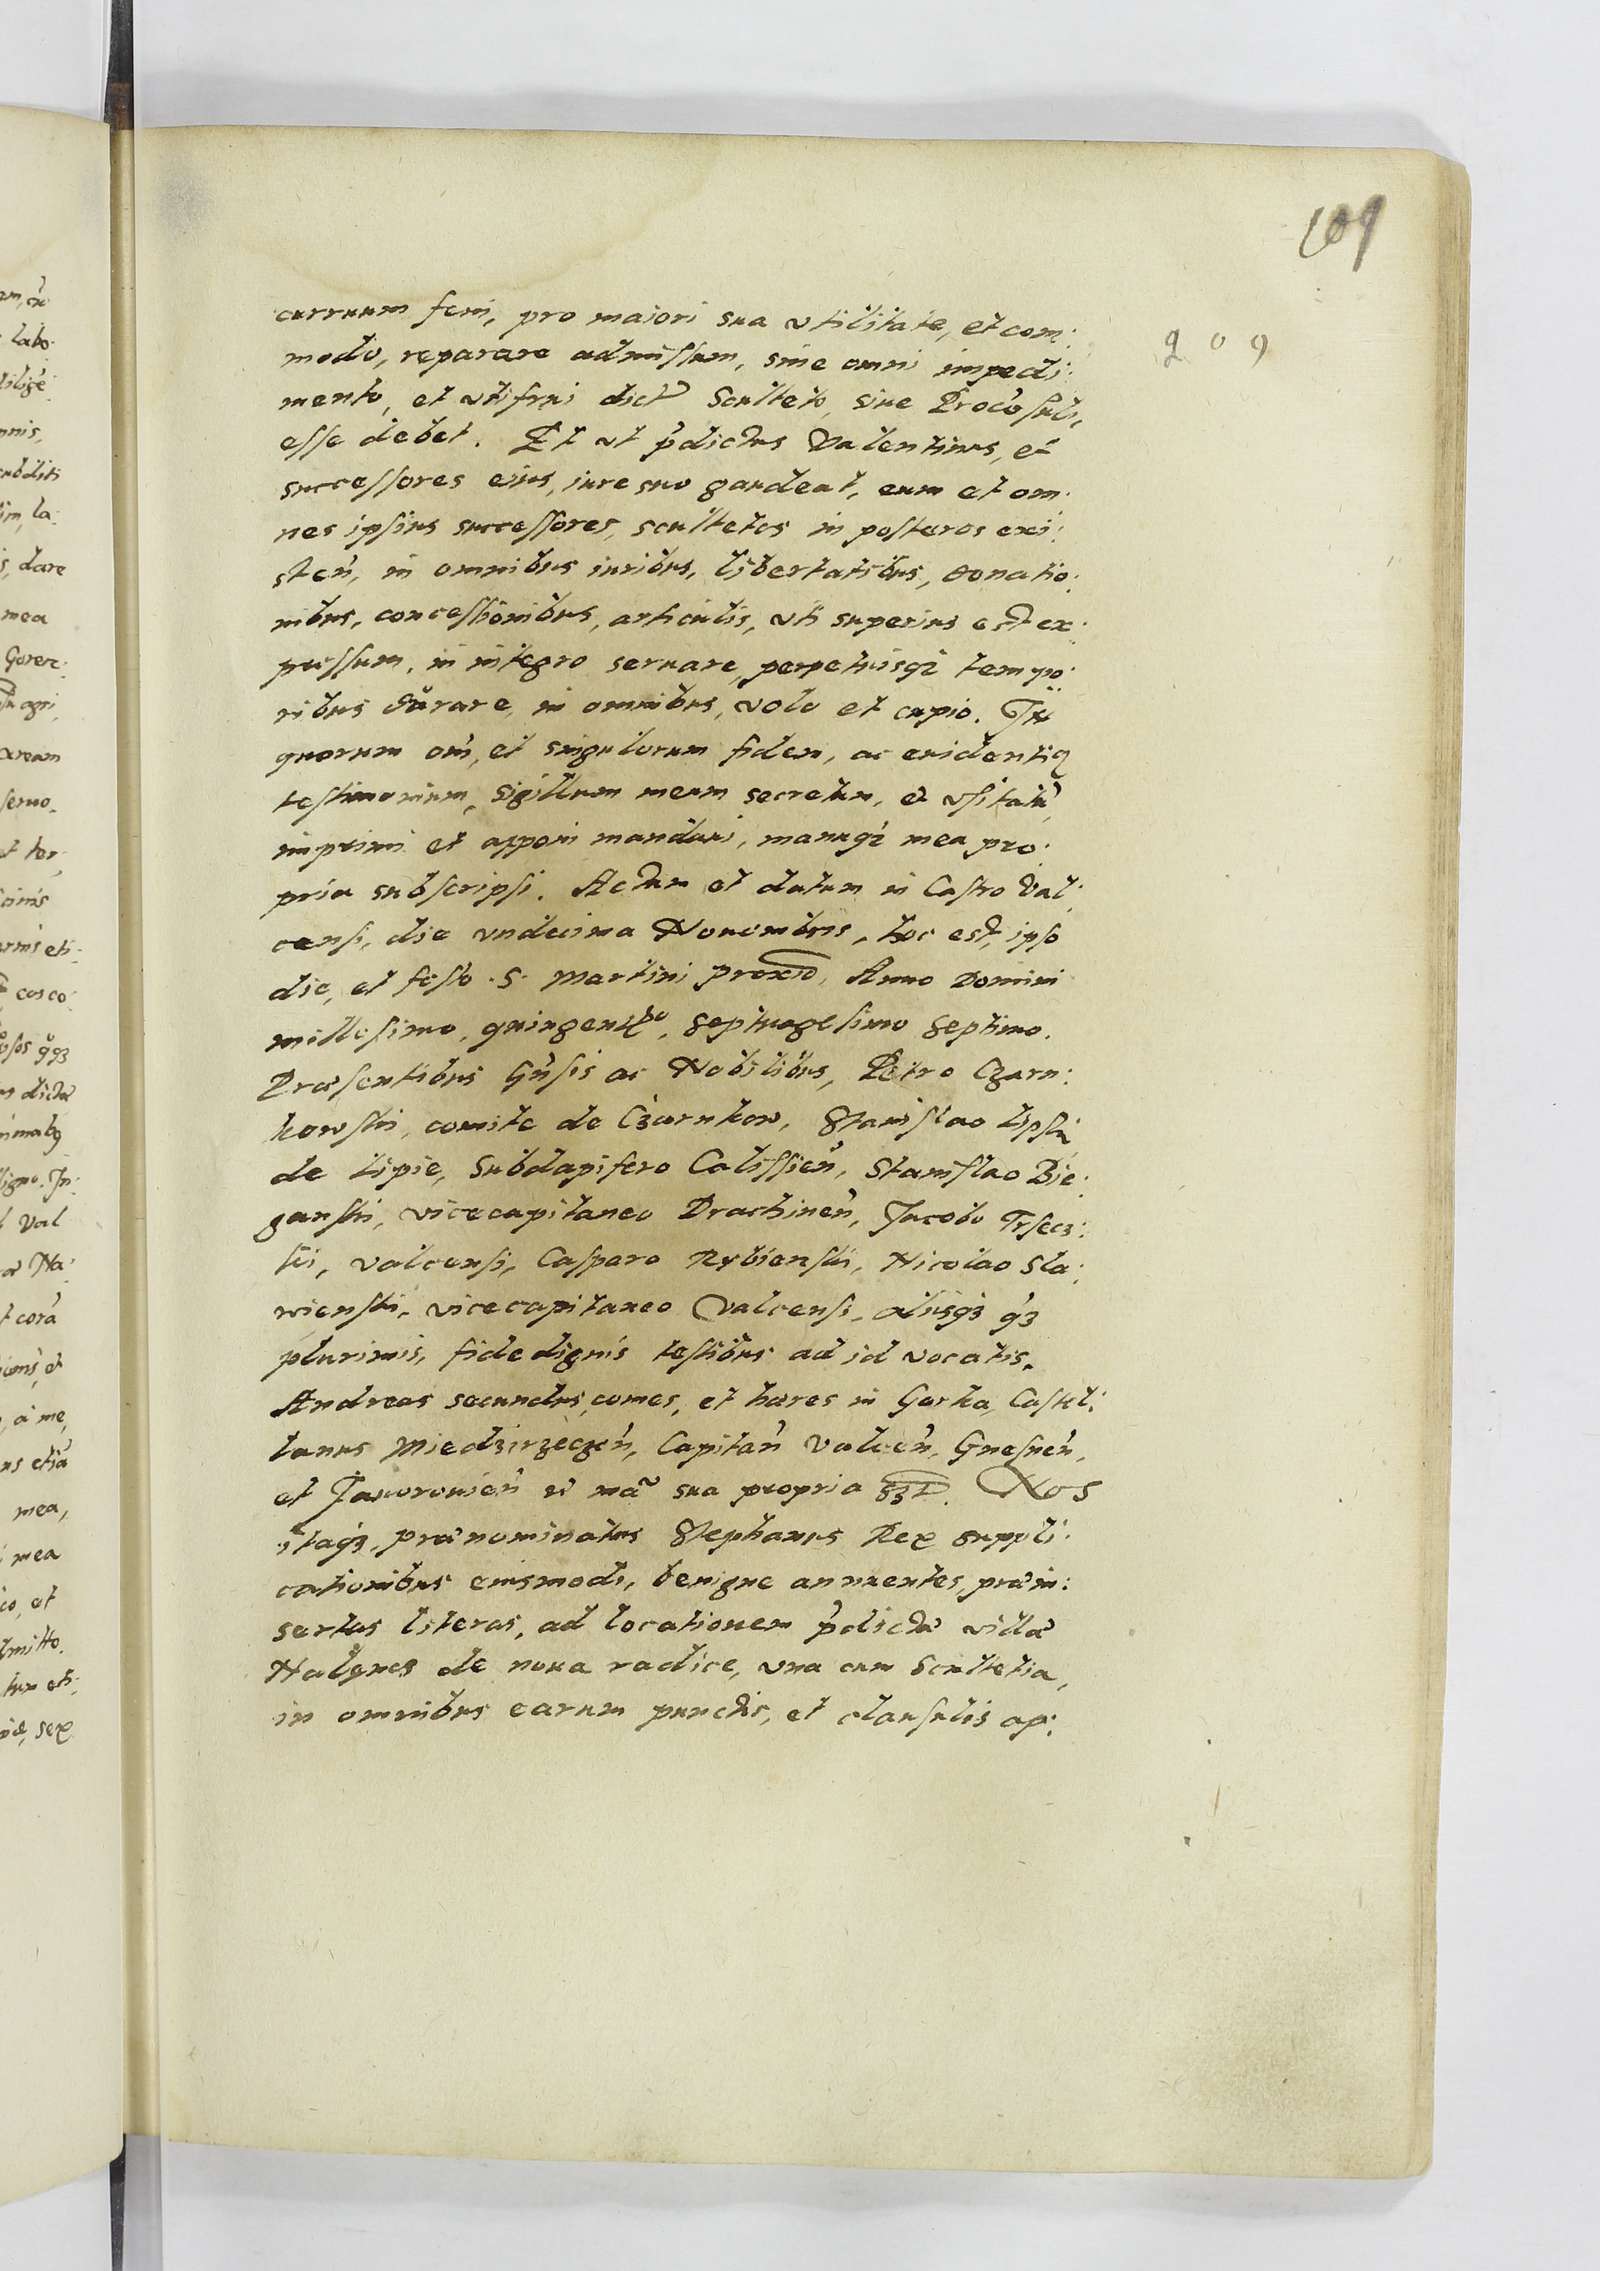 109
209
curruum feni, pro maiori sua vtilitate, et com:
modo, reparare admissum, sine omni impedi:
mento, et vtifrui dicto Sculteto, siue Procõsuli,
esse debet. Et vt p̃dictus Valentinus, et
successores eius, iure suo gaudeat, eum et om:
nes ipsius successores, scultetos in posteros exi:
steñ, in omnibus iuribus, libertatibus, donatio:
nibus, concessionibus, articulis, vti superius est ex:
pressum, in integro seruare, perpetuisq₃ tempo:
ribus durare, in omnibus, volo et cupio. In
quorum om̃, et singulorum fidem, ac euidentię
testimonium, sigillum meum secretum, et vsitatũ,
imprimi et apponi mandaui, manuq₃ mea pro:
pria subscripsi. Actum et datum in Castro Val:
censi, die vndecima Nouembris, hoc est, ipso
die, et festo S. Martini proxio, Anno Domini
millesimo, quingenᵗᵒ, septuagesimo septimo.
Præsentibus Gñsis ac Nobilibus, Petro Czarn:
kowski, comite de Czarnkow, Stanislao Lipski
de Lipie, Subdapifero Calissieñ, Stanislao Bie:
ganski, vicecapitaneo Drachineñ, Jacobo Trsecz:
ki, valcensi, Casparo Rybienski, Nicolao Sla:
wienski, vicecapitaneo Valcensi, alijsq₃ q̃₃
plurimis, fidedignis testibus ad id vocatis.
Andreas secundus, comes, et hæres in Gorka, Castel:
lanus Miedzirzeczeñ, Capitañ Valceñ, Gnesneñ,
et Jaworowieñ mã sua propria sst. Nos
itaq₃, prænominatus Stephanus Rex suppli:
cationibus eiusmodi, benigne annuentes, præin:
sertas literas, ad locationem p̃dictæ villæ
Nalgnes de noua radice, vna cum Scultetia,
in omnibus earum punctis, et clausulis ap: